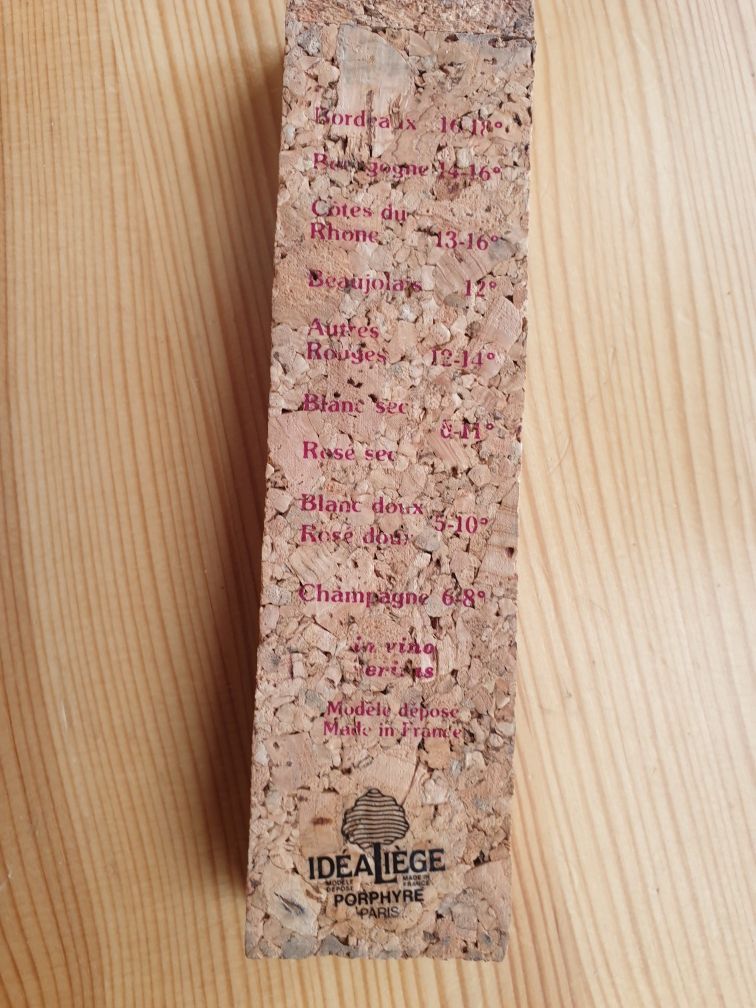 Bordeaux 16-18°
Bourgogne 14-16°
Côtes du
Rhone 13-16°
Beaujolais 12°
Autres
Rouges 12-14°
Blanc sec
8-11°
Rosé sec
Blanc doux
5-10°
Rosé doux
Champagne 6-8°
in vino
veritas
Modèle déposé
Made in France
IDÉALIÈGE
MODÈLE DÉPOSÉ MADE IN FRANCE
PORPHYRE
PARIS